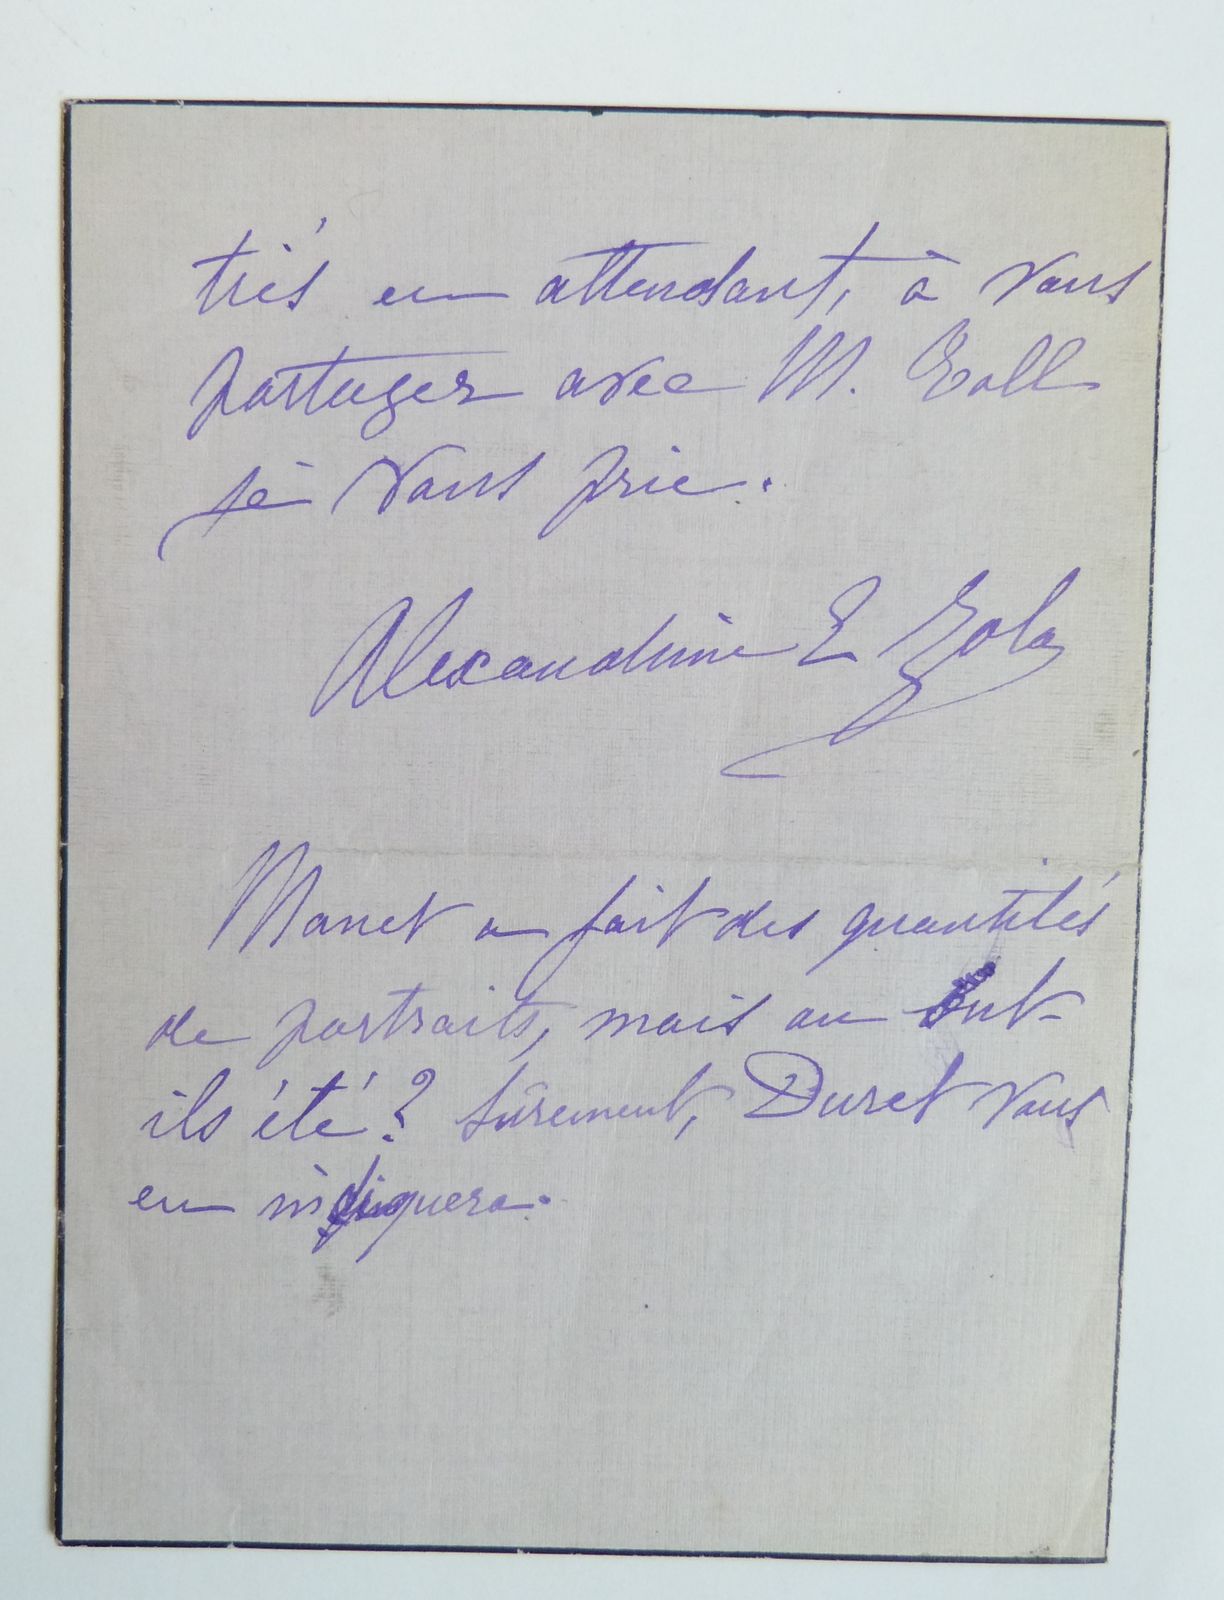 triés en attendant, à vous
partager avec M. Roll
je vous prie.
Alexandrine E Zola
Manet a fait des quantités
de portraits, mais où ont-
ils été? Sûrement, Duret vous
en indiquera.